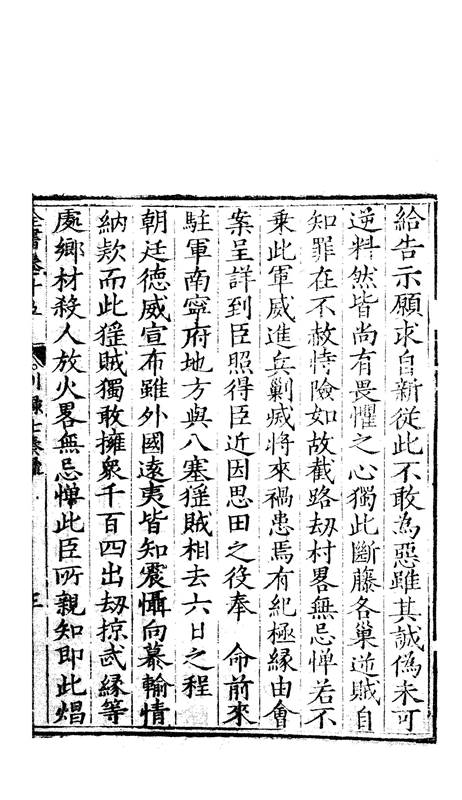 給告示願求自新從此不敢為惡雖其誠偽未可
逆料然皆尚有畏懼之心獨此斷藤各巢逆賊自
知罪在不赦恃險如故截路劫村畧無忌憚若不
乗此軍威進兵剿㓕將來禍患焉有紀極縁由會
案呈詳到臣照得臣近因思田之役奉　命前來
駐軍南寧府地方與八塞猺賊相去六日之程
朝廷德威宣布雖外國遠夷皆知震懾向慕輸情
納欵而此猺賊獨敢擁衆千百四出劫掠武縁等
處鄉村殺人放火畧無忌憚此臣所親知即此猖
全書卷十五
三